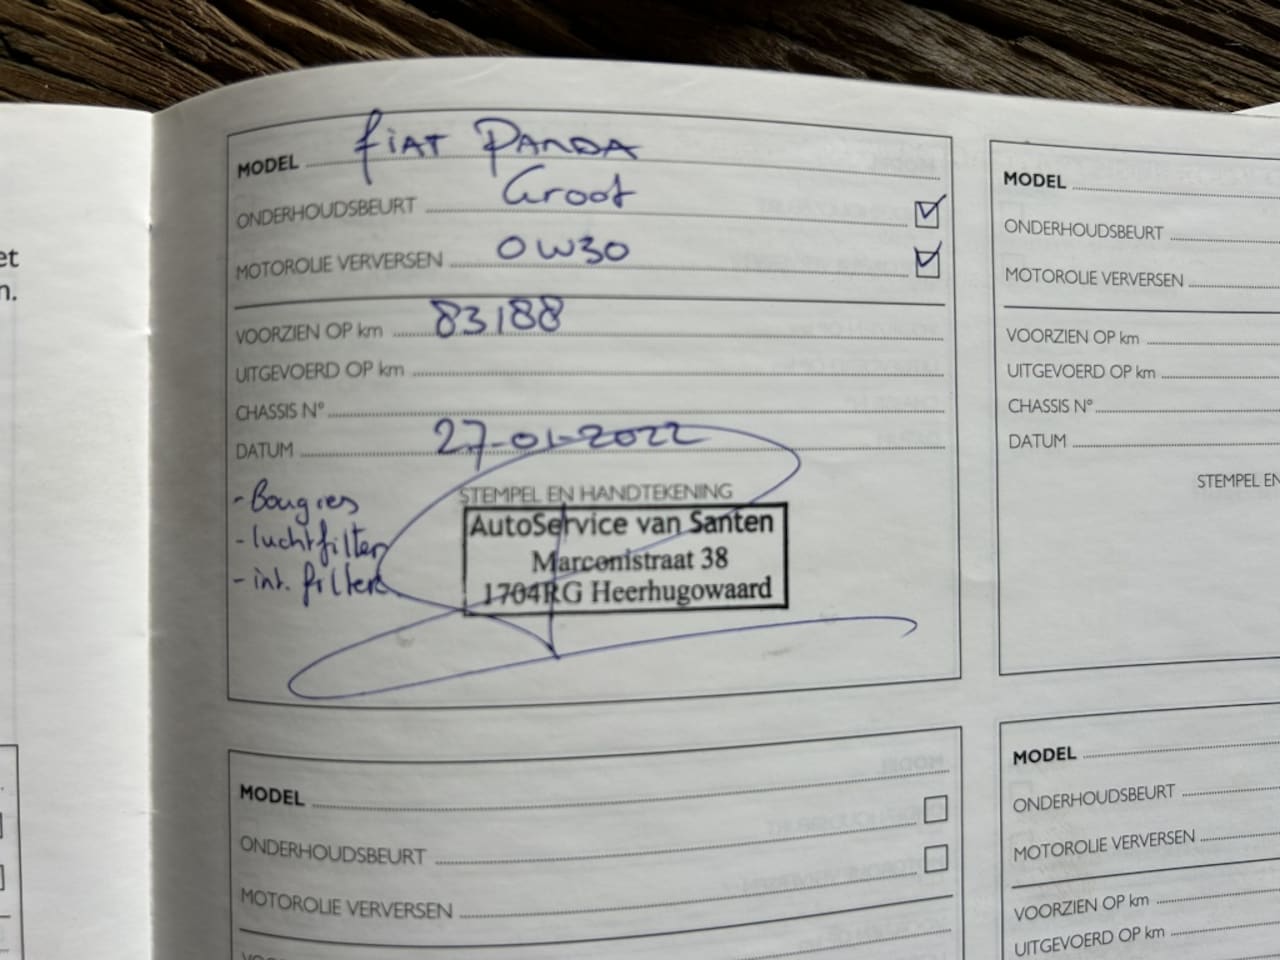 et
n.
MODEL fiAT PANDA
ONDERHOUDSBEURT Groot
MOTOROLIE VERVERSEN 0W30
VOORZIEN OP km 83188
UITGEVOERD OP km
CHASSIS N°
DATUM 27-01-2022
- Bougies
- luchtfilter
- int. filter
STEMPEL EN HANDTEKENING
AutoService van Santen
Marconistraat 38
1704RG Heerhugowaard
MODEL
ONDERHOUDSBEURT
MOTOROLIE VERVERSEN
VOORZIEN OP km
UITGEVOERD OP km
CHASSIS N°
DATUM
STEMPEL EN
MODEL
ONDERHOUDSBEURT
MOTOROLIE VERVERSEN
MODEL
ONDERHOUDSBEURT
MOTOROLIE VERVERSEN
VOORZIEN OP km
UITGEVOERD OP km